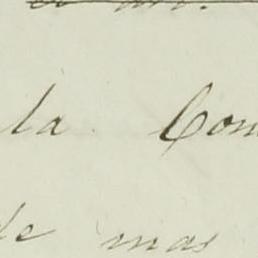 la Com
de mas